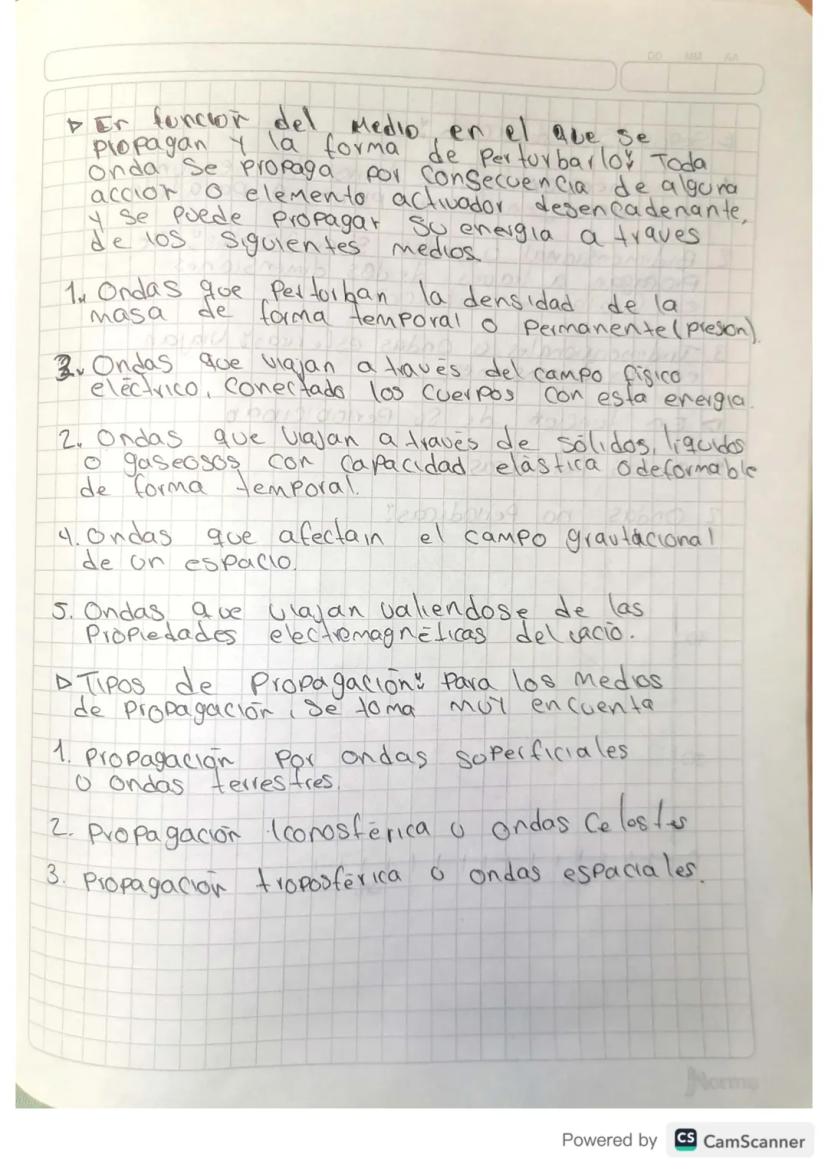 DD MM AA
▷ En función del Medio en el que se
propagan y la forma de perturbarlo: Toda
onda se propaga por consecuencia de alguna
acción o elemento activador desencadenante,
y se puede propagar su energía a traves
de los siguientes medios.
1. Ondas que perturban la densidad de la
masa de forma temporal o permanente (presion).
3. Ondas que viajan a través del campo físico
eléctrico, conectado los cuerpos con esta energia.
2. Ondas que viajan a través de sólidos, líquidos
o gaseosos con capacidad elástica o deformable
de forma temporal.
4. Ondas que afectan el campo gravitacional
de un espacio.
5. Ondas que viajan valiendose de las
Propiedades electromagnéticas del vacio.
▷ Tipos de Propagación: Para los medios
de propagación, se toma muy encuenta
1. Propagación por ondas superficiales
o ondas terrestres.
2. Propagación Iconosférica u ondas Celestes
3. Propagación troposférica o ondas espaciales.
Norma
Powered by CS CamScanner